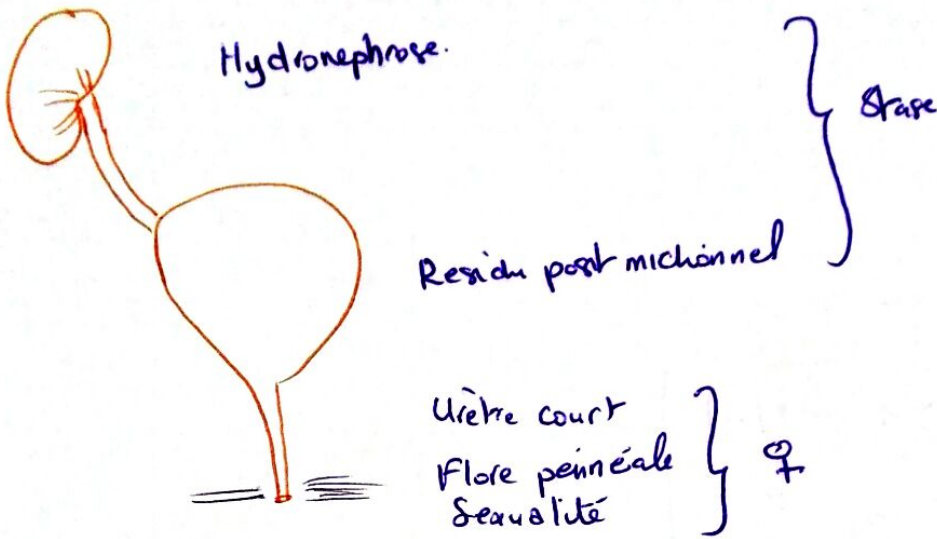 Hydronephrose.
Stase
Residu post mictionnel
Urètre court
Flore périnéale
Sexualité
♀